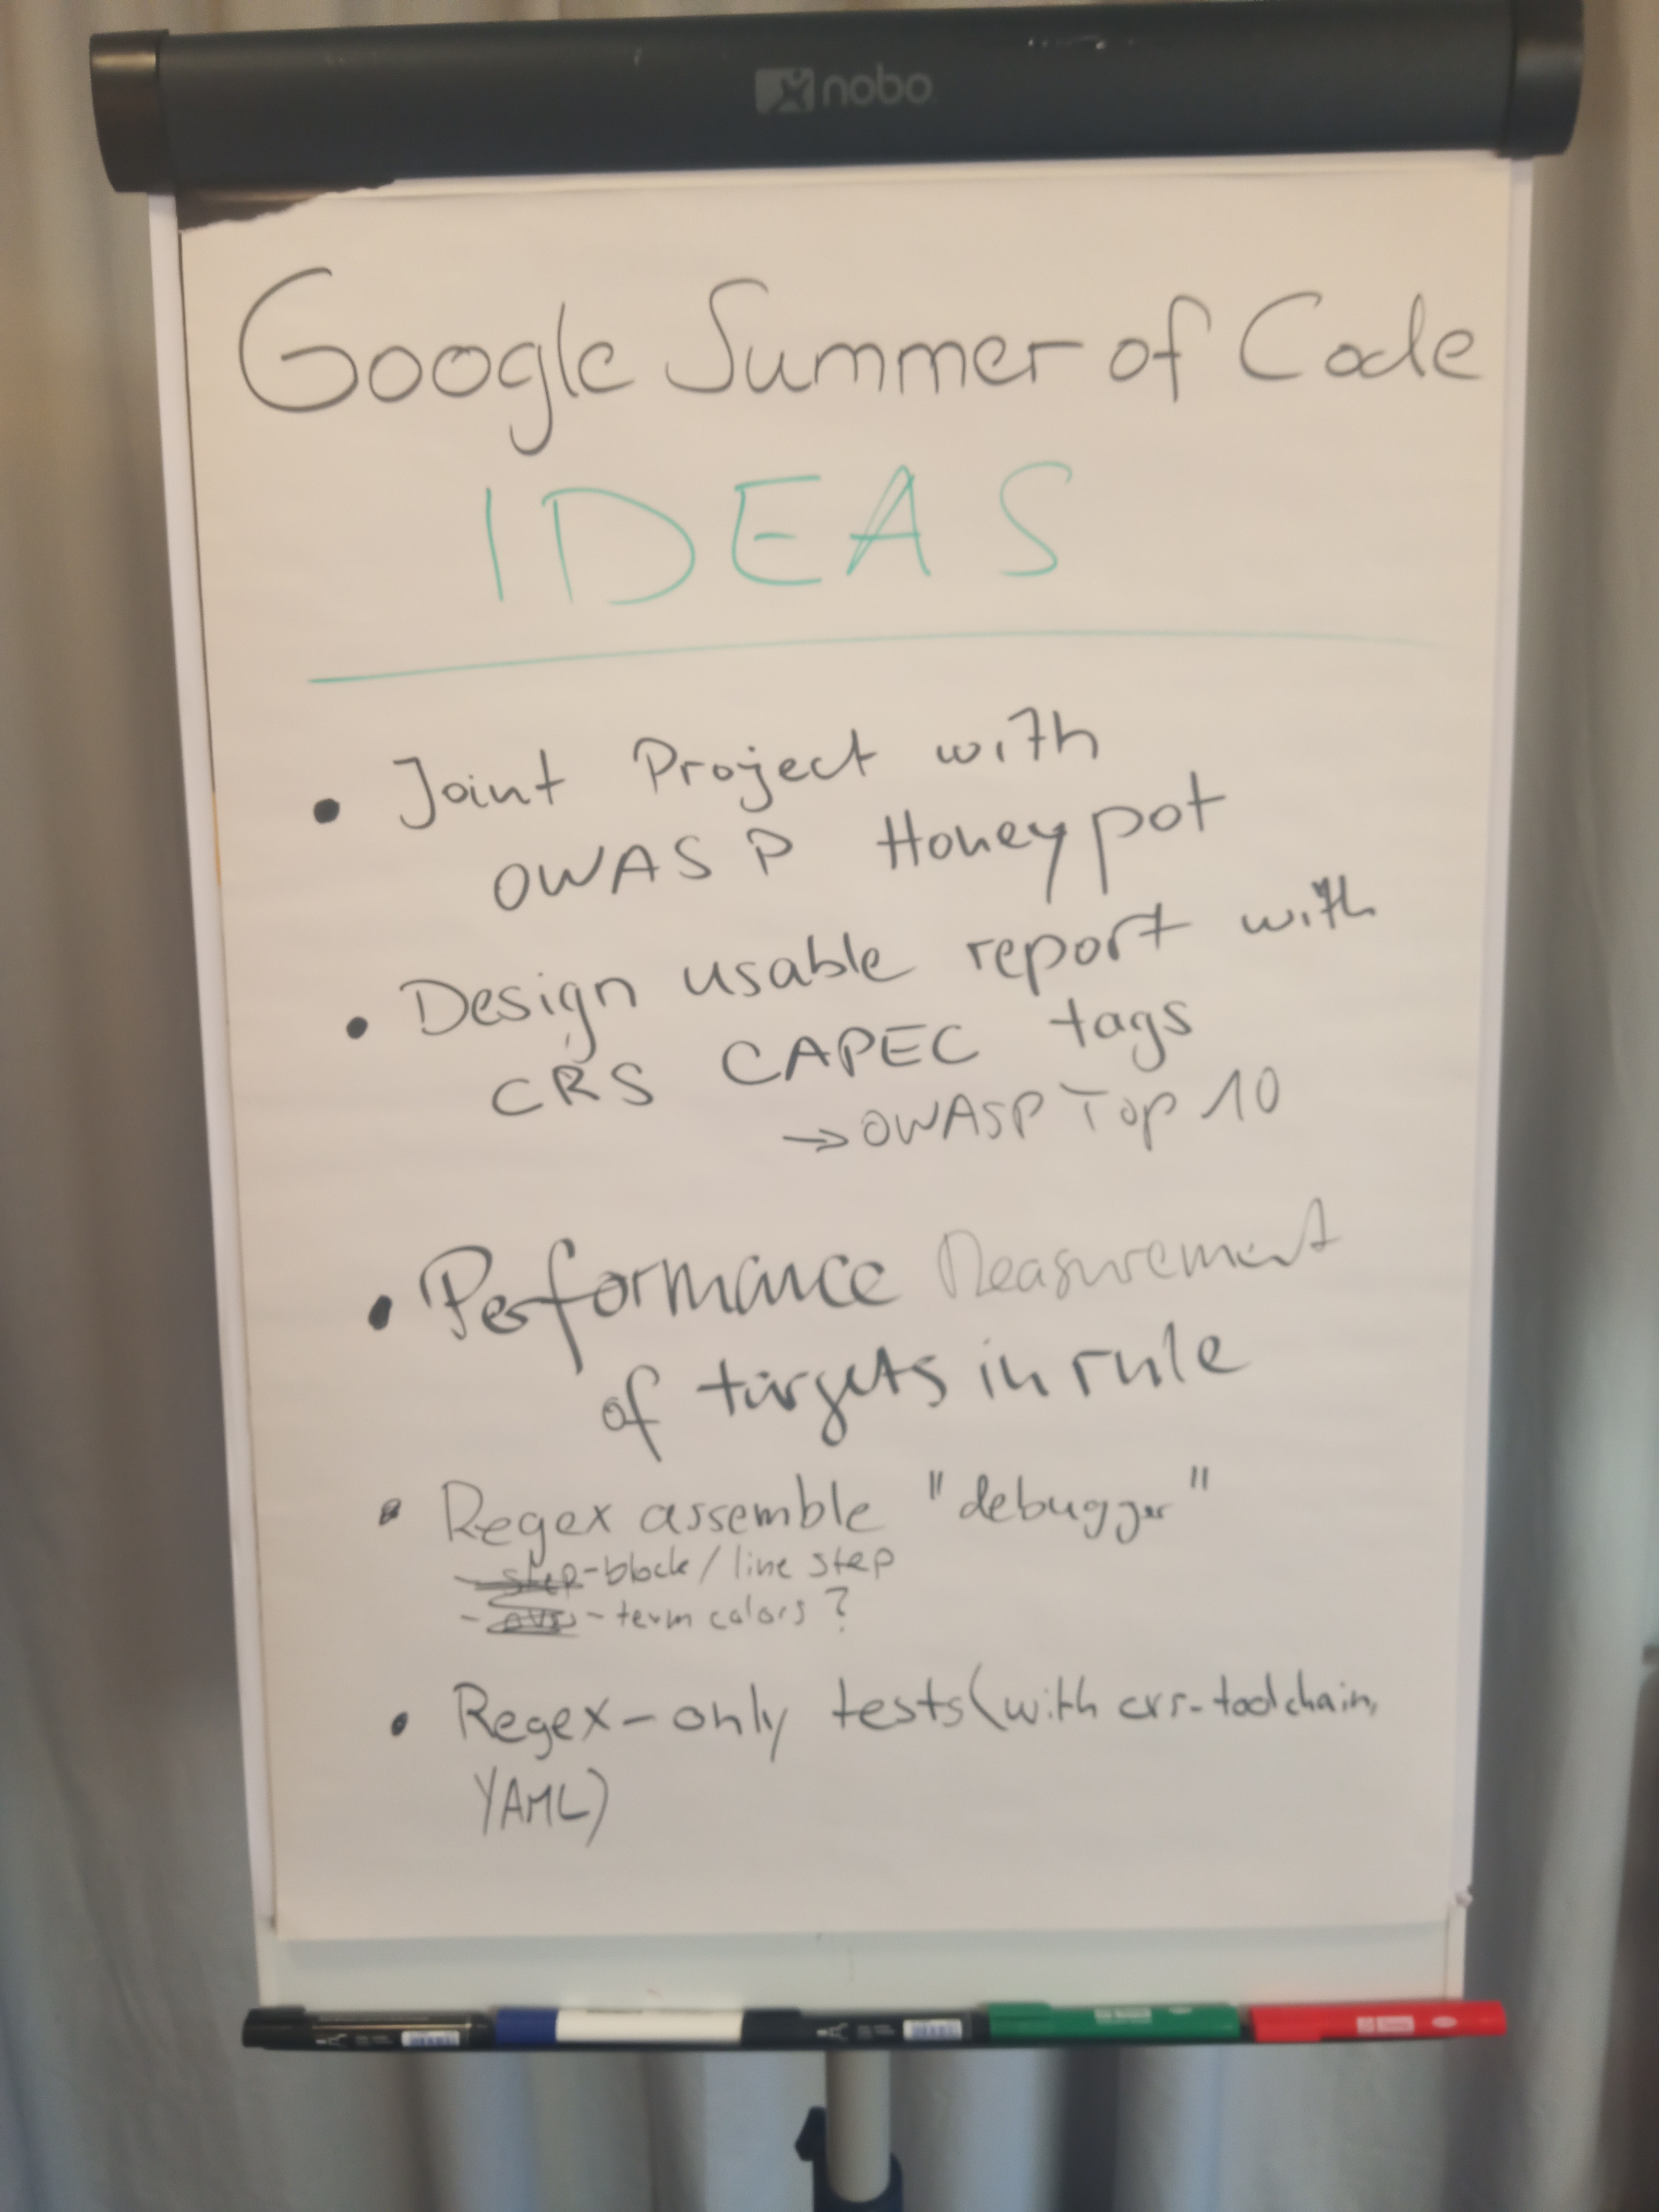 nobo
Google Summer of Code
IDEAS
• Joint Project with
OWASP Honeypot
• Design usable report with
CRS CAPEC tags
→ OWASP Top 10
• Performance Measurement
of targets in rule
• Regex assemble "debugger"
- step-block / line step
- - term colors ?
• Regex-only tests (with crs-toolchain,
YAML)